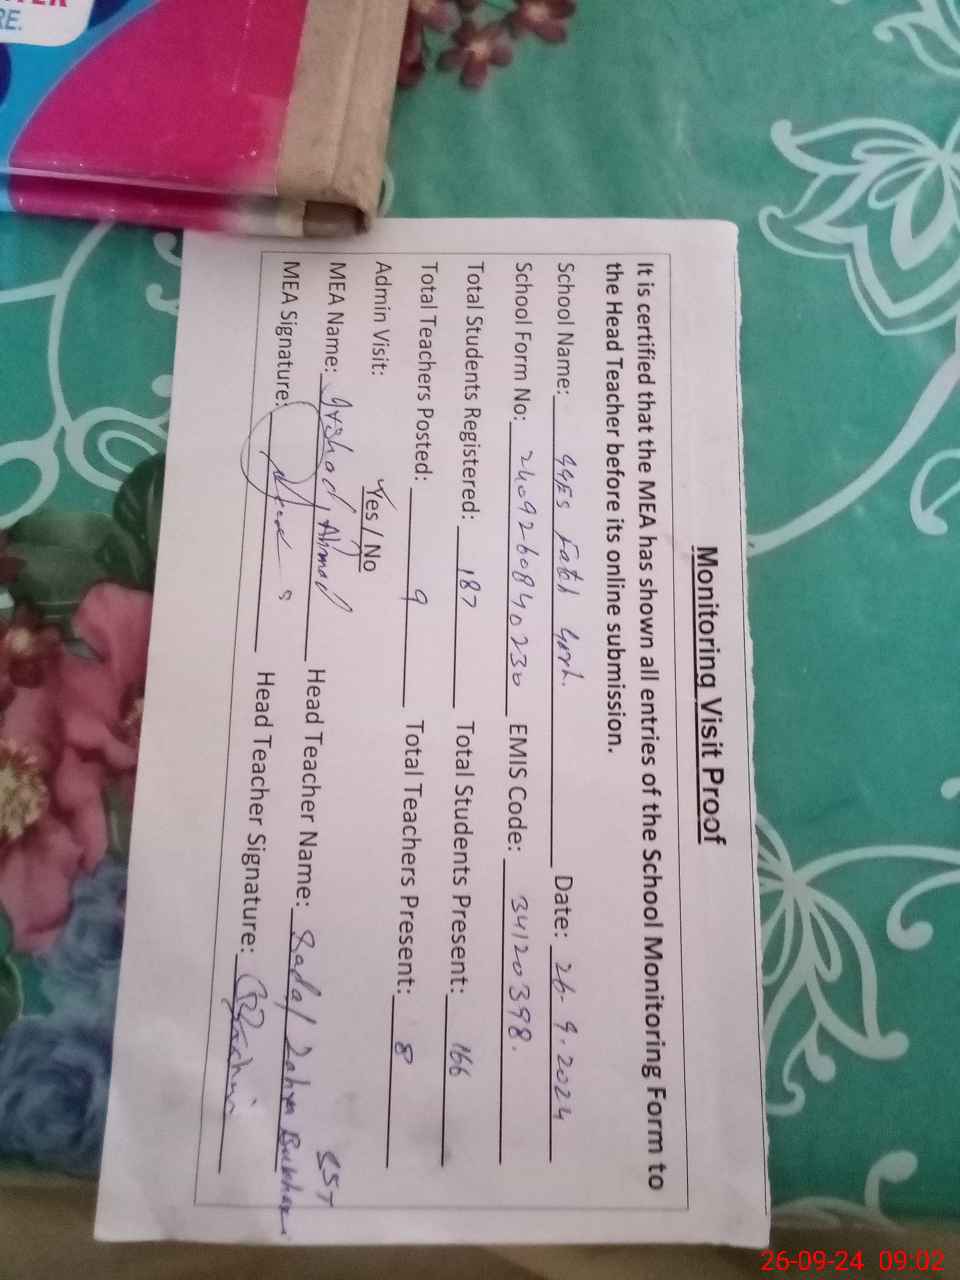 RE.
Monitoring Visit Proof
It is certified that the MEA has shown all entries of the School Monitoring Form to
the Head Teacher before its online submission.
School Name: GGES Fateh Garh. Date: 26-9-2024
School Form No: 2409260840230 EMIS Code: 34120398.
Total Students Registered: 187 Total Students Present: 166
Total Teachers Posted: 9 Total Teachers Present: 8
Admin Visit: Yes / No
SST
MEA Name: Irshad Ahmad Head Teacher Name: Zahra Bukhari
MEA Signature: Head Teacher Signature:
26-09-24 09:02